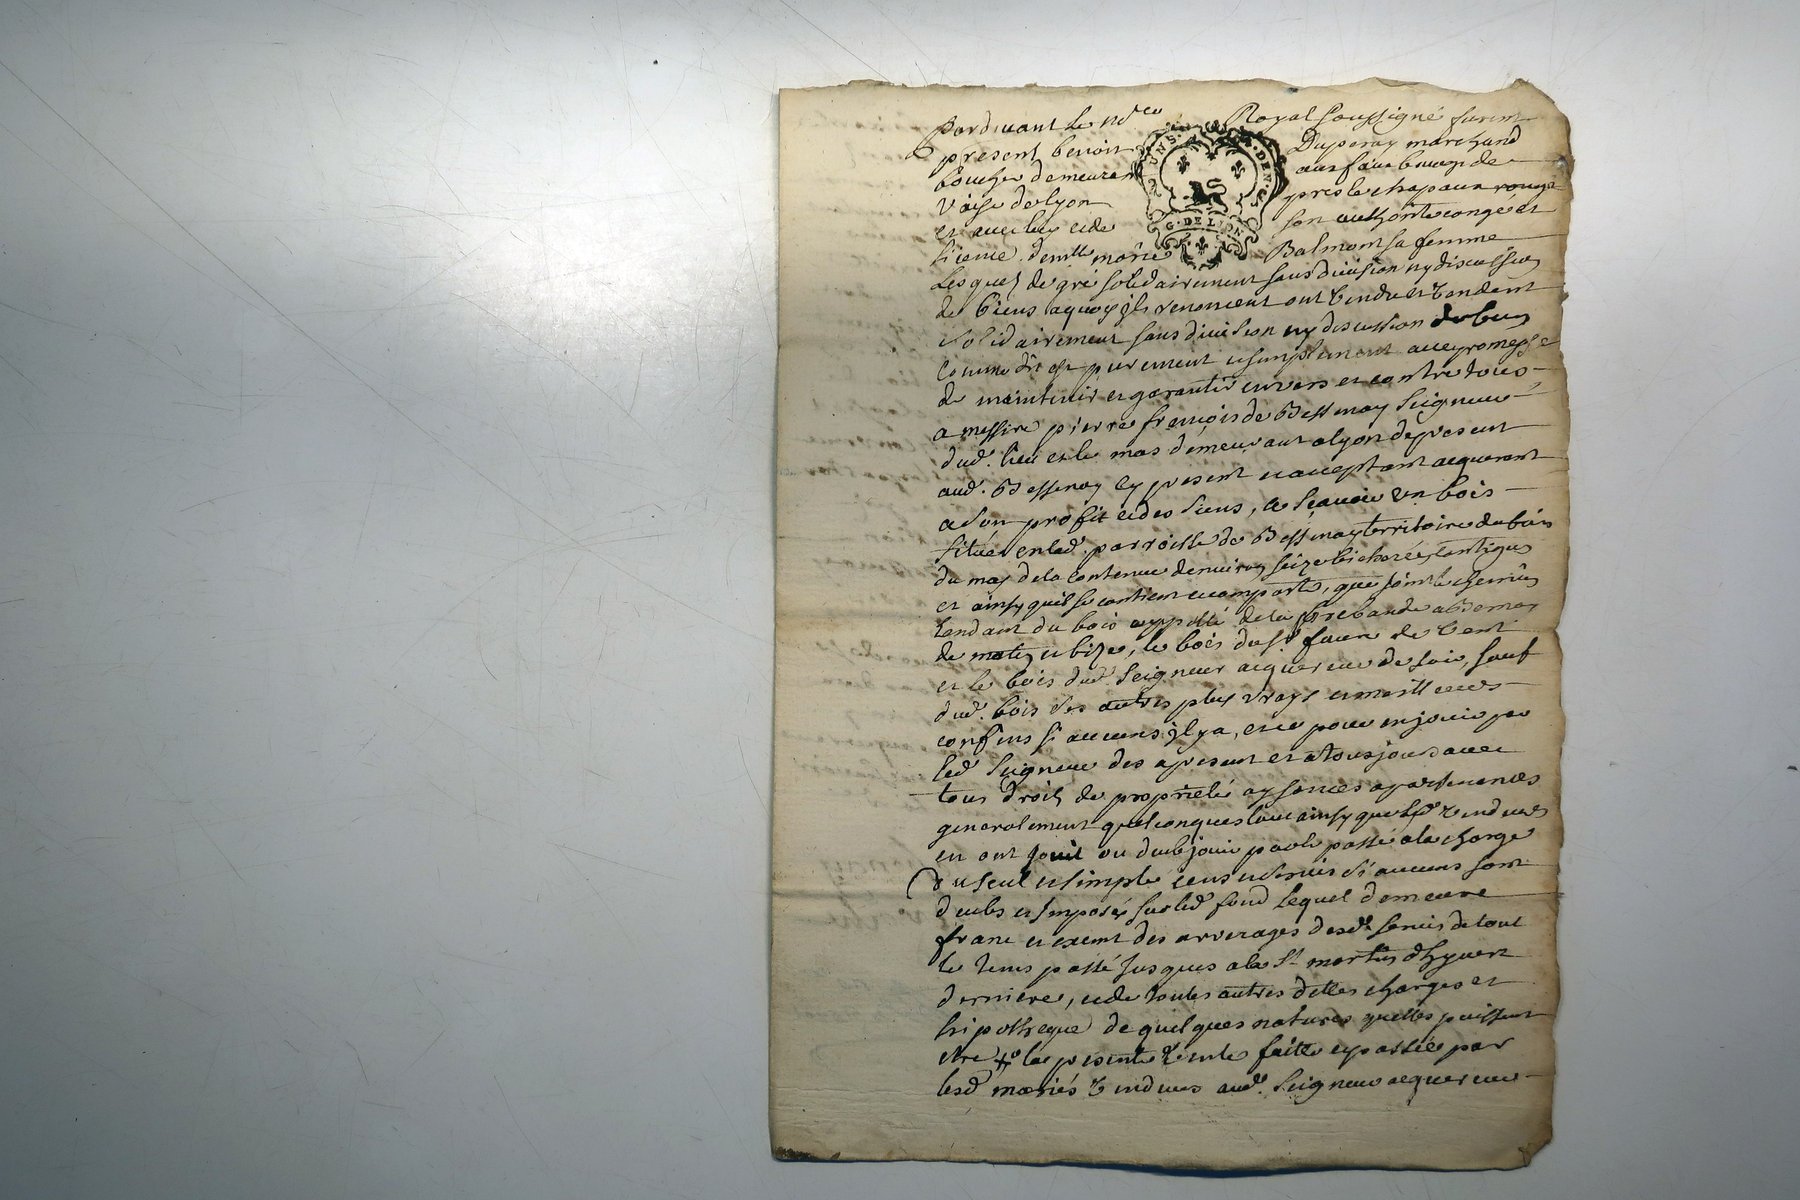 Pardevant le no.re Royal soussigné furent
present benoist Duperay marchand
boucher demeurant aux faux bourgs de
Vaize de lyon pres le chapeau rouge
et avec luy et de son authorité congé et
licence dem.lle marie Balmont sa femme
Lesquels de gré solidairement sans division ny discussion
de biens a quoy jls renoncent ont vendu et vendent
solidairement sans division ny discussion de biens
comme dit est purement et simplement avec promesse
de maintenir et garantir envers et contre tous
a messire pierre françois de Bessenay Seigneur
dud. lieu et le mas demeurant a lyon de present
aud. Bessenay cy present et acceptant acquerant
a son profit et des siens, a Sçavoir un bois
situé en lad. parroisse de Bessenay territoire du bois
du mas de la contenue denviron seize bicherées contigus
et ainsy quil se contient et comporte, que joint le chemin
tendant du bois appellé de la prebande a Bessenay
de matin et bize, le bois du S.r faure de vent
et le bois dud. Seigneur acquereur de soir, sauf
dud. bois ses autres plus vrays et meilleurs
confins si aucuns jl y a, et ce pour en jouir par
led. Seigneur des a present et a tousjours avec
tous droits de proprieté aysances apartenances
generalement quelconques tout ainsy que lesd. vendeurs
en ont jouit ou deub jouir par le passé a la charge
du seul et simple cens et servis si aucuns sont
deubs et jmposés sur led. fond Lequel demeure
franc et exemt des arrerages desd. servis de tout
le tems passé jusques a la S.t martin dhyvert
derniere, et de toutes autres dettes charges et
hipotheque de quelques natures quelles puissent
etre la presente vente faitte et passée par
lesd. mariés vendeurs aud. Seigneur acquereur
G. DE LYON